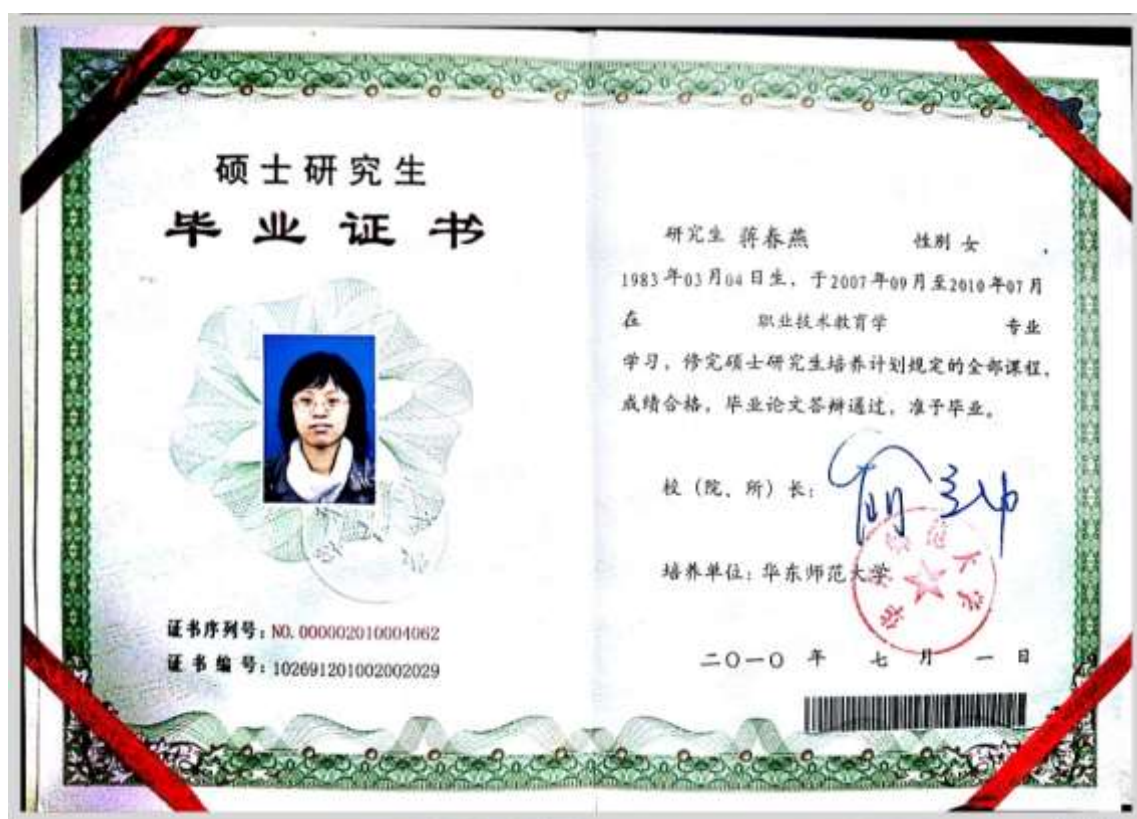 硕士研究生
毕业证书
证书序列号：NO.000002010004062
证书编号：102691201002002029
研究生 蒋春燕 性别 女 ，
1983年03月04日生，于2007年09月至2010年07月
在 职业技术教育学 专业
学习，修完硕士研究生培养计划规定的全部课程，
成绩合格，毕业论文答辩通过，准予毕业。
校（院、所）长：
培养单位：华东师范大学
二○一○ 年 七 月 一 日